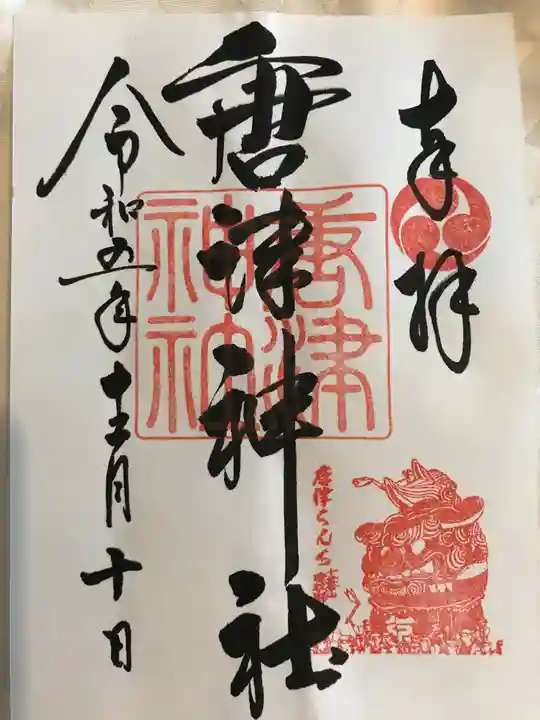 奉拝
唐津神社
令和五年十二月十日
唐津神社
唐津くんち